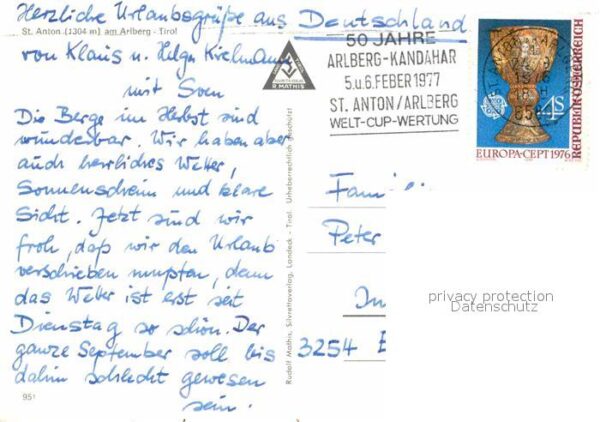 Herzliche Urlaubsgrüße aus Deutschland
St. Anton (1304 m) am Arlberg - Tirol
von Klaus u. Helga
mit Sven
Die Berge im Herbst sind
wunderbar. Wir haben aber
auch herrliches Wetter,
Sonnenschein und klare
Sicht. Jetzt sind wir
froh, daß wir den Urlaub
verschieben mußten, denn
das Wetter ist erst seit
Dienstag so schön. Der
ganze September soll bis
dahin schlecht gewesen
sein.
951
R. MATHIS
Rudolf Mathis, Silvrettaverlag, Landeck - Tirol. Urheberrechtlich geschützt
50 JAHRE
ARLBERG-KANDAHAR
5.u.6.FEBER 1977
ST. ANTON/ARLBERG
WELT-CUP-WERTUNG
4S
REPUBLIK ÖSTERREICH
EUROPA-CEPT 1976
Fam
Peter
In
3254
privacy protection
Datenschutz